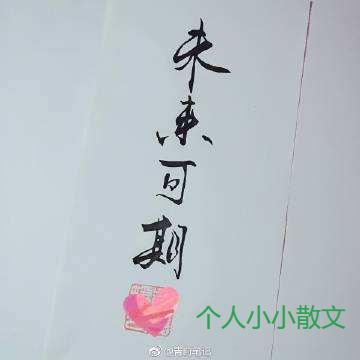 未来可期
个人小小散文